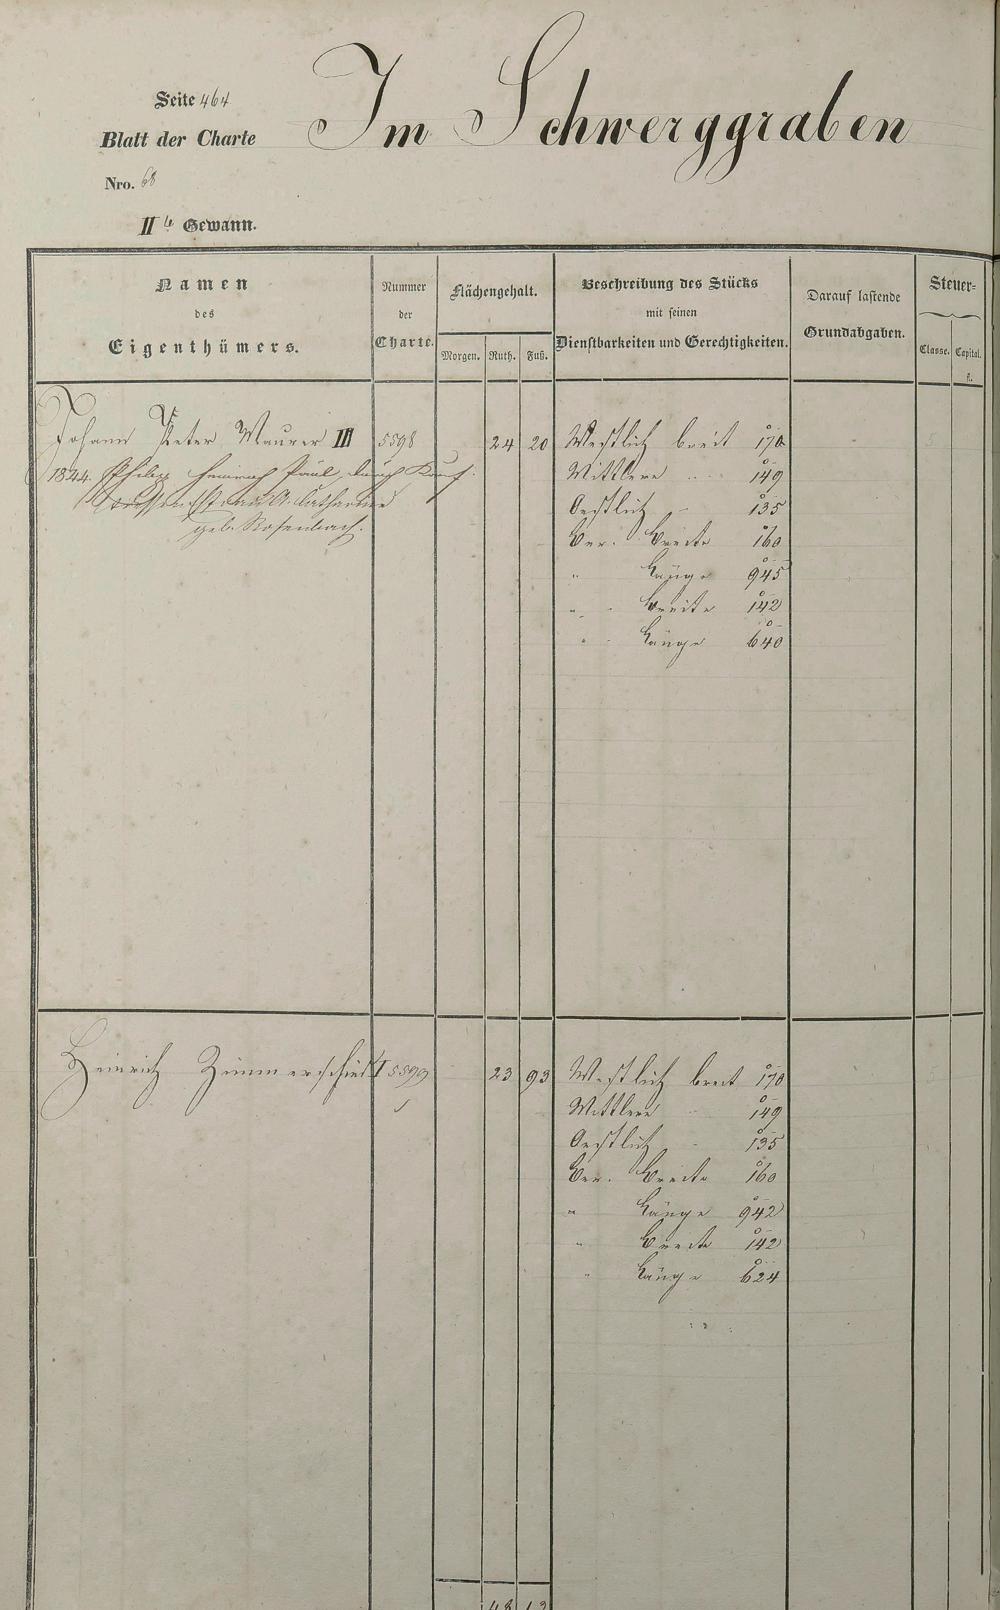 Im Schwerggraben
Seite 464
Blatt der Charte
Nro. 68
IIte Gewann.
Namen
des
Eigenthümers.
Nummer
der
Charte.
Flächengehalt.
Morgen. Ruth. Fuß.
Beschreibung des Stücks
mit seinen
Dienstbarkeiten und Gerechtigkeiten.
Darauf lastende
Grundabgaben.
Steuer=
Classe. Capital.
fl.
Johann Peter Maurer III 5598 24 20 Westlich breit 170
1844. Philipp Heinrich Paul, durch Kauf. Mittlere 149
Oestlich 135
dessen Catharine
geb. Rosenbach.
Ver. Breite 160
" Länge 945
" Breite 142
" Länge 640
Heinrich Zimmerschied I 5599 23 93 Westlich breit 170
Mittlere 149
Oestlich 135
Ver. Breite 160
" Länge 942
" Breite 142
" Länge 624
48 13